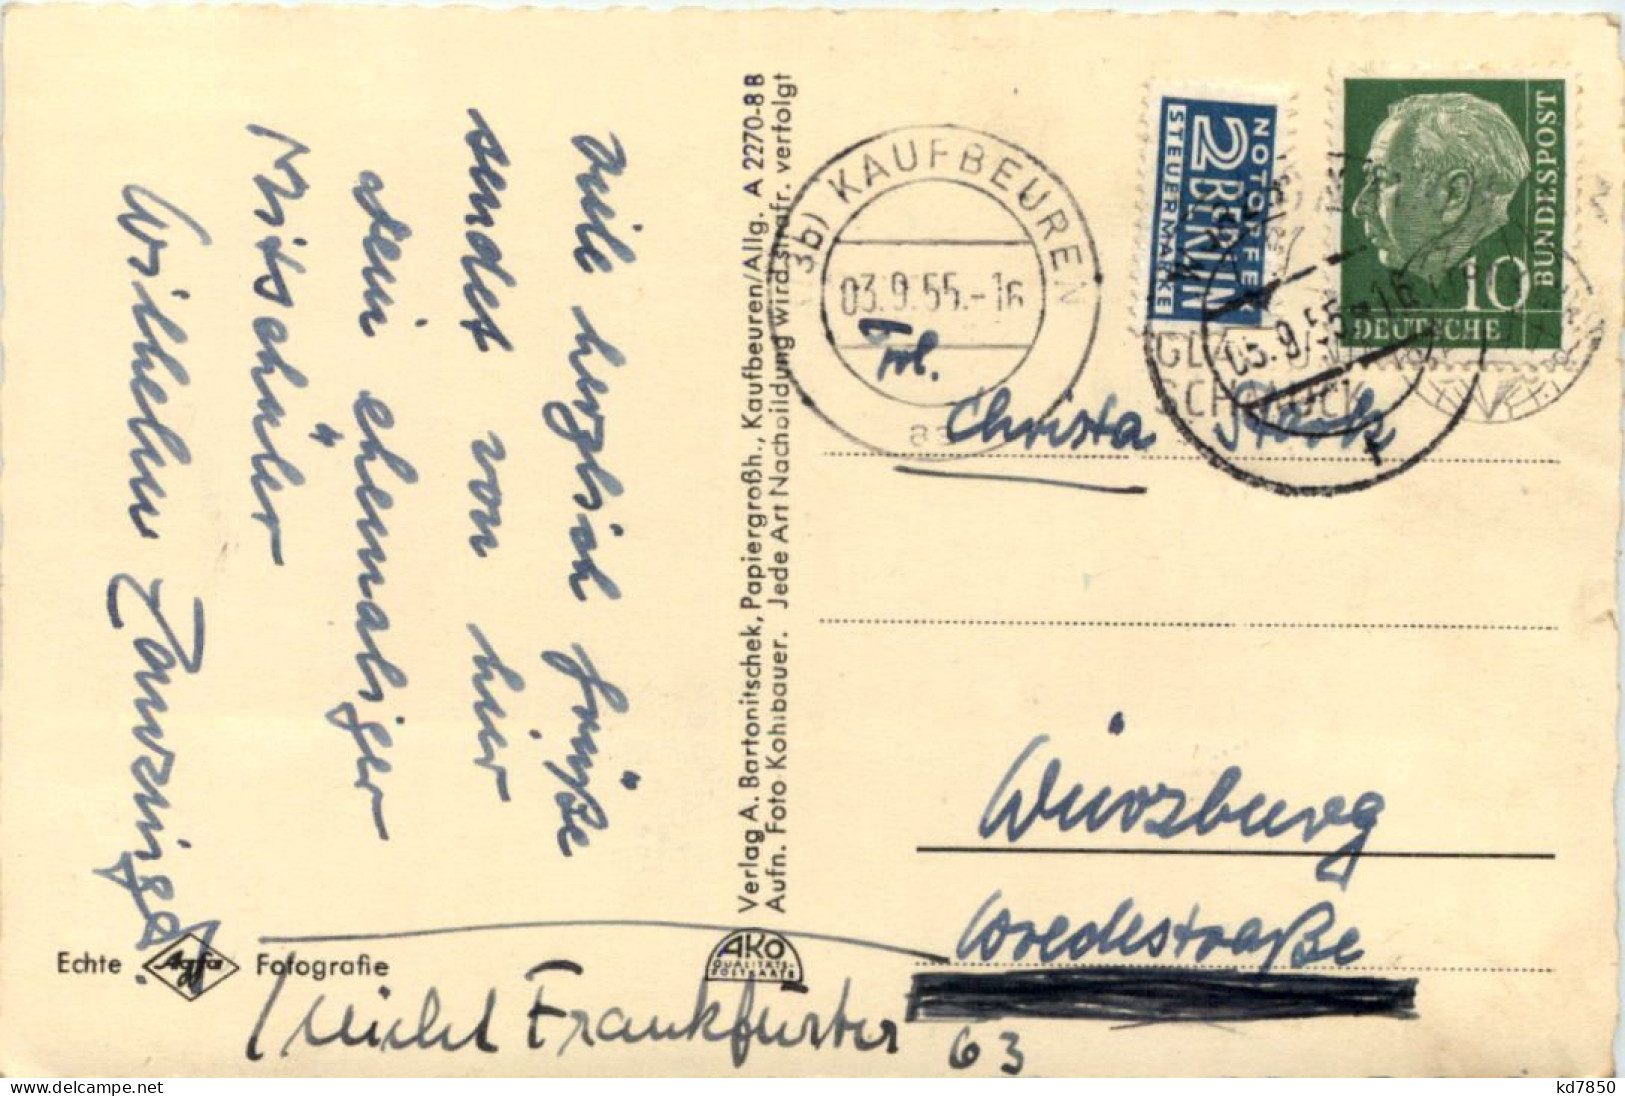 Viele herzlich Grüße
sendet von hier
dein ehemaliger
Mitschüler
Wilhelm
Echte Agfa Fotografie
Verlag A. Bartonitschek, Papiergroßh., Kaufbeuren/Allg. A 2270-8 B
Aufn. Foto Kohlbauer. Jede Art Nachbildung wird strafr. verfolgt
AKO
QUALITÄTS-
POSTKARTE
3b) KAUFBEUREN
03.9.55.-16
NOTOPFER
2 BERLIN
STEUERMARKE
BUNDESPOST
10
DEUTSCHE
05.9.55-16
Frl.
Christa Stark
Würzburg
Wredestraße
nicht Frankfurter 63
kd7850